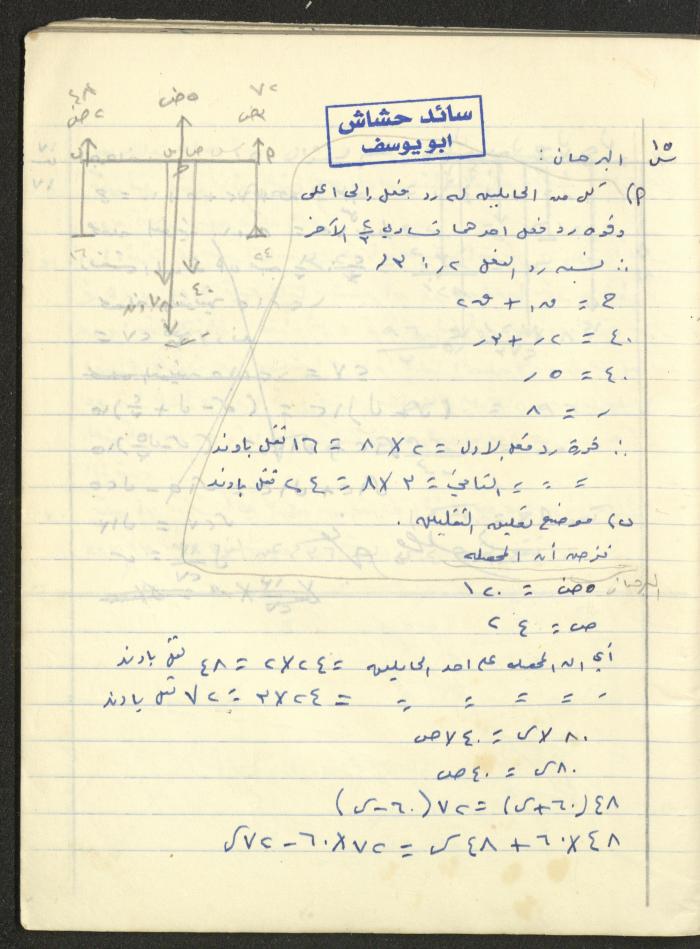 سائد حشاش
ابو يوسف
س١٥ البرهان :
٢) كل من الحاملين له رد فعل إلى اعلى
وقوة رد فعل احدهما تساوي ٢/٣ الآخر
∴ نسبة رد الفعل ٢ر : ٣ر
ح = ق١ + ق٢
٤٠ = ٢ر + ٣ر
٤٠ = ٥ ر
ر = ٨
∴ قوة رد فعل الاول = ٢ × ٨ = ١٦ ثقل باوند
= = = الثاني = ٣ × ٨ = ٢٤ ثقل باوند
ب) موضع تعليق الثقلين .
نفرض أن المحصله
البرهان ٥ص = ١٢٠
ص = ٢٤
أي ان المحصله على احد الحاملين = ٢٤×٢ = ٤٨ ثقل باوند
= = = = = ٢٤×٣ = ٧٢ ثقل باوند
٨٠ × س = ٤٠ × ص
٨٠س = ٤٠ص
٤٨(٦٠+س) = ٧٢(٦٠-س)
٤٨×٦٠ + ٤٨س = ٧٢×٦٠ - ٧٢س
٤٨
٢ص
٥ص
٧٢
٣ص
١٦
٢٤
٤٠